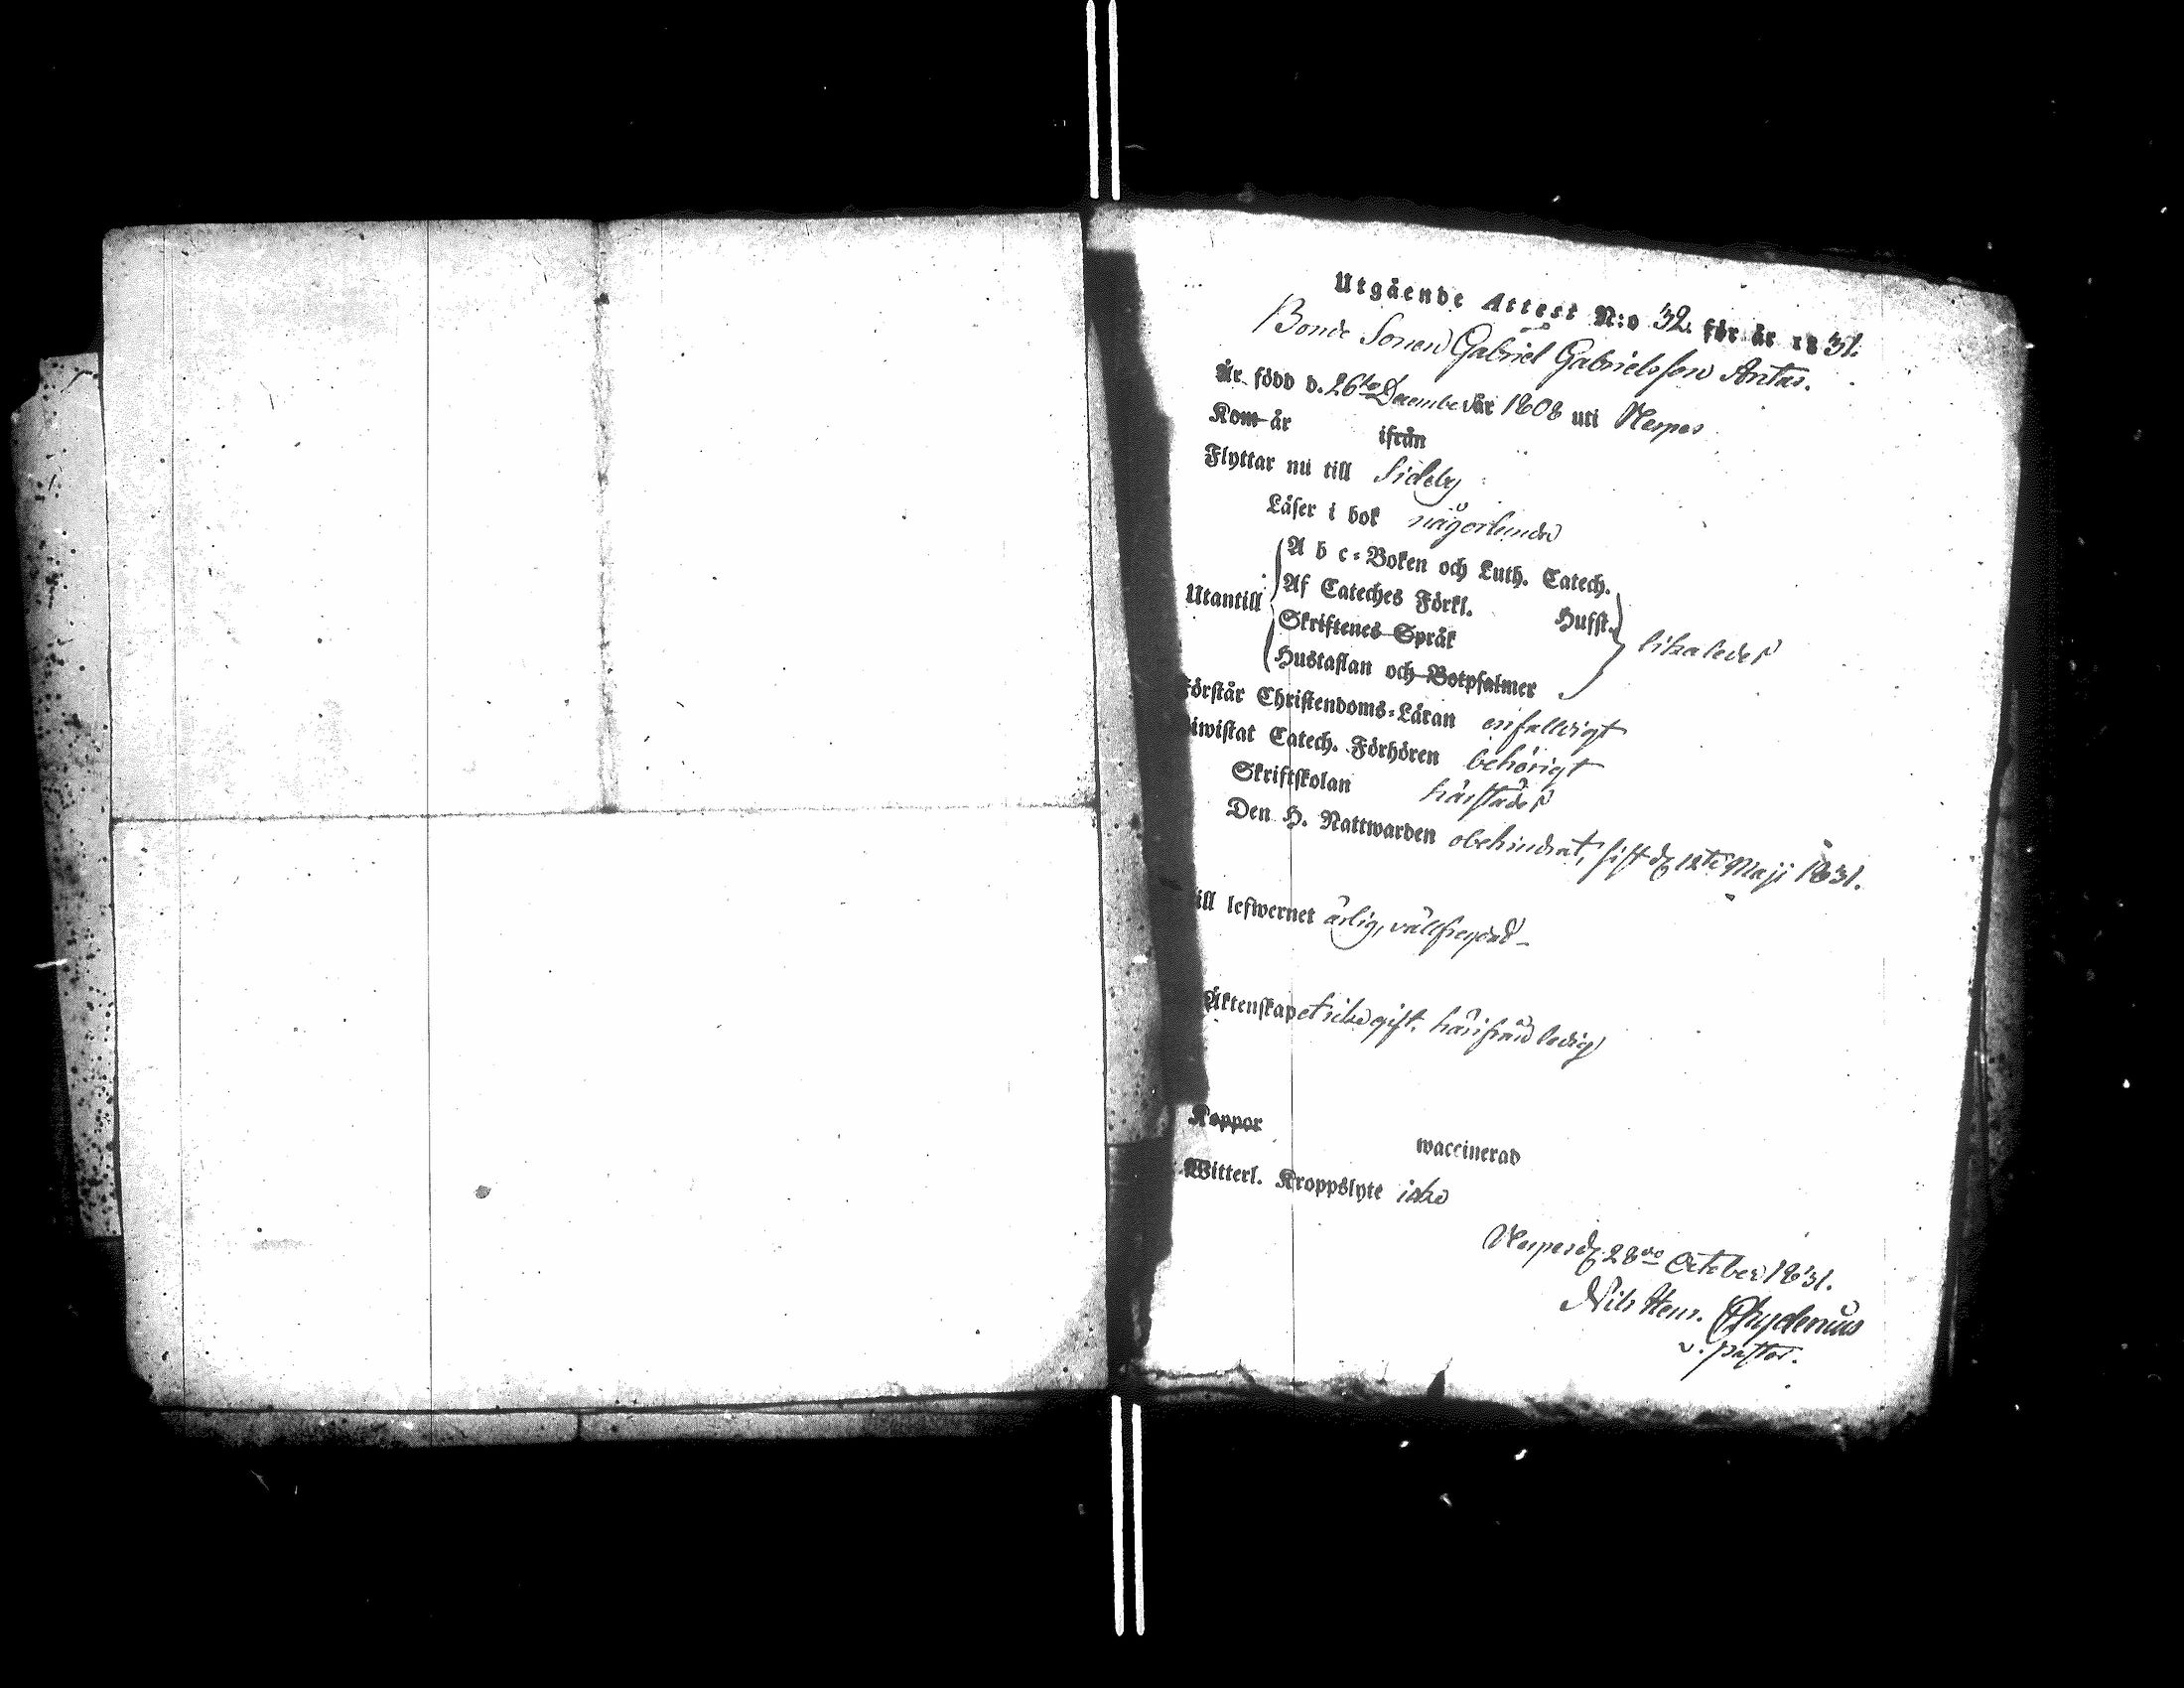 Utgående Attest N:o 32. för år 1831.
Bonde Sonen Gabriel Gabrielsson Antas.
Är född d. 26te December År 1808 uti Nerpes
Kom år ifrån
Flyttar nu till Sideby
Läser i bok någorlunda
A b c-Boken och Luth. Catech.
Af Cateches Förkl. Husst.
Utantill
Skriftenes Språk
likaledes
Hustaflan och Botpsalmer
Förstår Christendoms-Läran enfalldigt
Biwistat Catech. Förhören behörigt
Skriftskolan härstädes
Den H. Nattwarden obehindrat, sist d. 12te Maji 1831.
till lefwernet ärlig, vällfrejdad
Äktenskapet icke gift, härifrån ledig
Koppor
waccinerad
Witterl. Kroppslyte icke
Nerpes d. 28de October 1831.
Nils Henr. Chydenius
v. pastor.